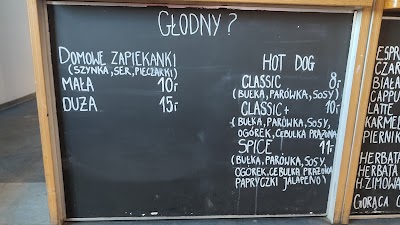 GŁODNY?
DOMOWE ZAPIEKANKI
(SZYNKA, SER, PIECZARKI)
MAŁA 10,-
DUŻA 15,-
HOT DOG
CLASSIC 8,-
(BUŁKA, PARÓWKA, SOSY)
CLASSIC+ 10,-
(BUŁKA, PARÓWKA, SOSY,
OGÓREK, CEBULKA PRAŻONA)
SPICE 11,-
(BUŁKA, PARÓWKA, SOSY,
OGÓREK, CEBULKA PRAŻONA
PAPRYCZKI JALAPENO)
ESPR
CZAR
BIAŁA
CAPPU
LATTE
KARMEL
PIERNIK
HERBATA
HERBATA
H. ZIMOWA
GORĄCA C